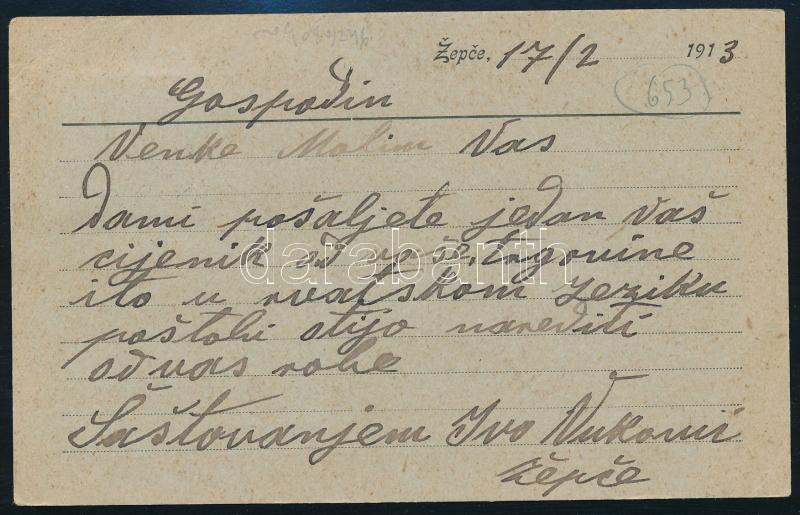 Žepče, 17/2 1913
653
Gospodin
Venke Molim Vas
Dami pošaljete jedan vaš
cijenik od vaše trgovine
ito u rvatskom Jeziku
poštobi otijo narediti
od vas robe
Saštovanjem Ivo Vuković
Žepče
darabanth